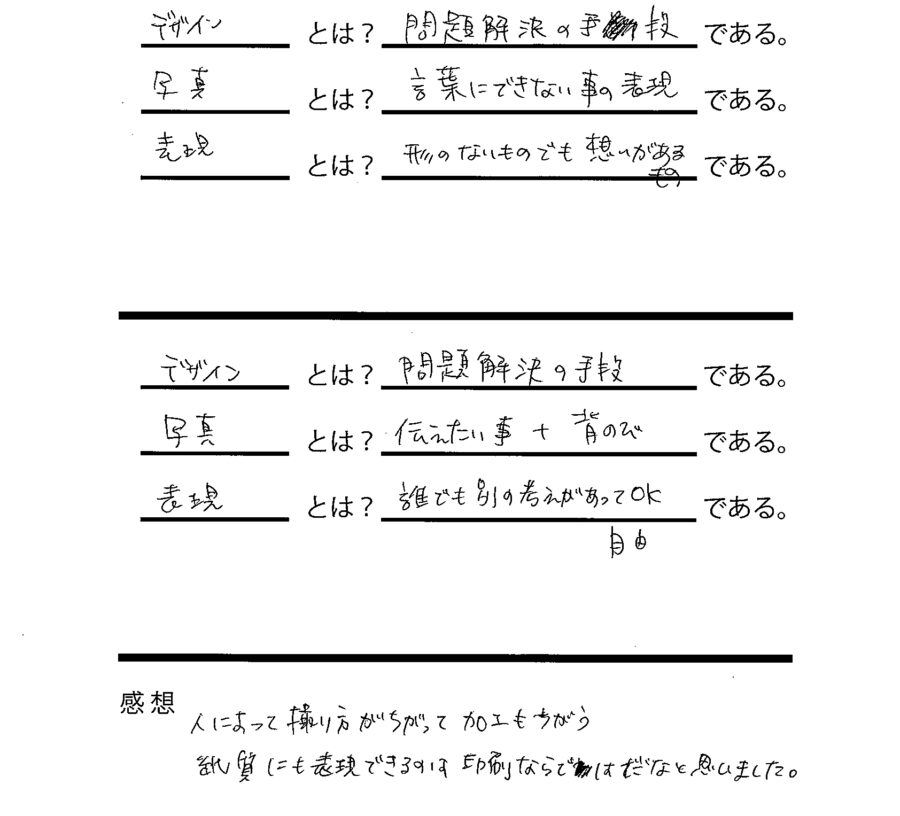 デザイン とは? 問題解決の手段 である。
写真 とは? 言葉にできない事の表現 である。
表現 とは? 形のないものでも想いがある である。
もの
デザイン とは? 問題解決の手段 である。
写真 とは? 伝えたい事 + 背のび である。
表現 とは? 誰でも別の考えがあってOK である。
自由
感想
人によって撮り方がちがって加工もちがう
紙質にも表現できるのは印刷ならではだなと思いました。